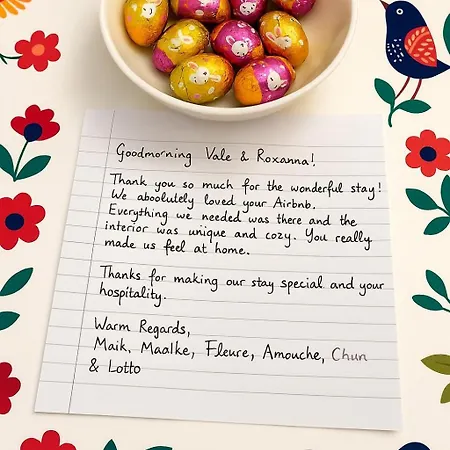 Goodmorning Vale & Roxanna!
Thank you so much for the wonderful stay!
We abolutely loved your Airbnb.
Everything we needed was there and the
interior was unique and cozy. You really
made us feel at home.
Thanks for making our stay special and your
hospitality.
Warm Regards,
Maik, Maalke, Fleure, Amouche, Chun
& Lotto